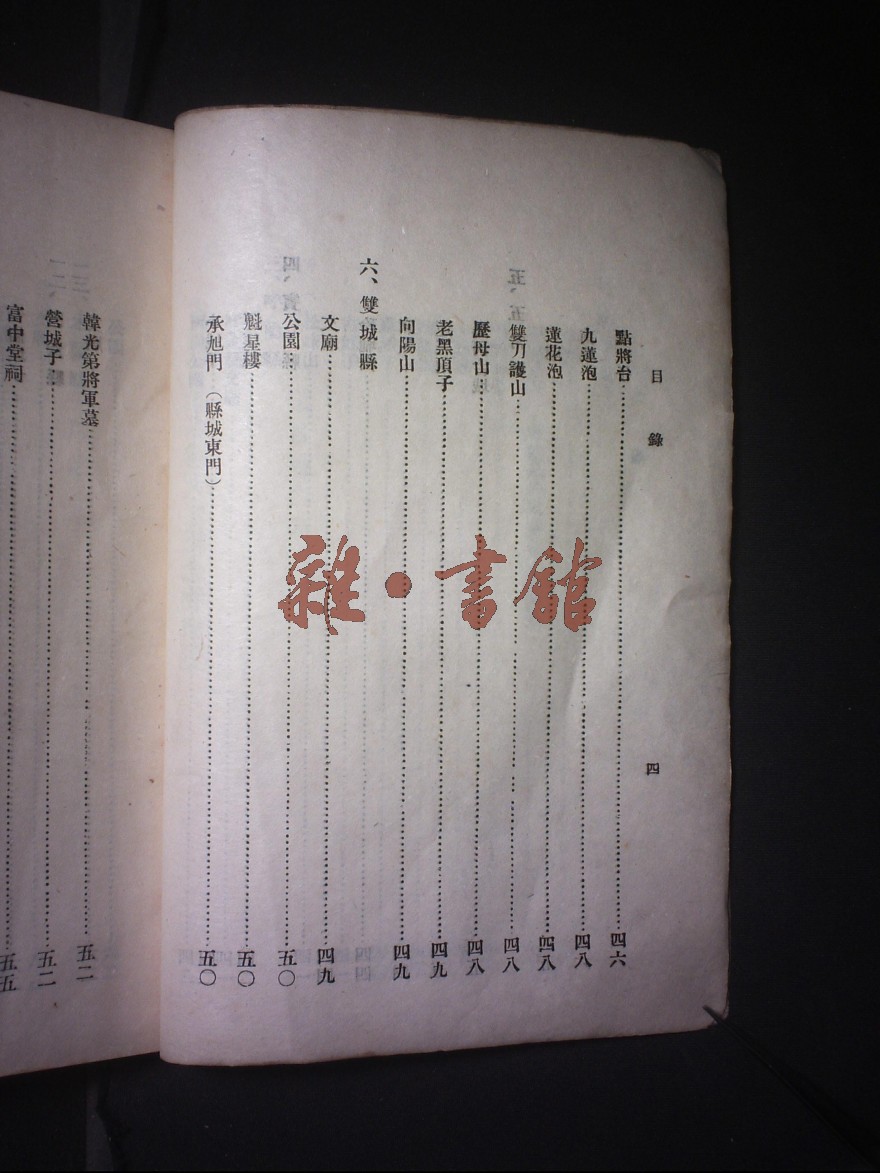 目錄 四
點將台……四六
九蓮泡……四八
蓮花泡……四八
雙刀護山……四八
歷母山……四八
老黑頂子……四九
向陽山……四九
六、雙城縣
文廟……四九
公園……五〇
魁星樓……五〇
承旭門（縣城東門）……五〇
韓光第將軍墓……五二
營城子……五二
富中堂祠……五五
雜·書館